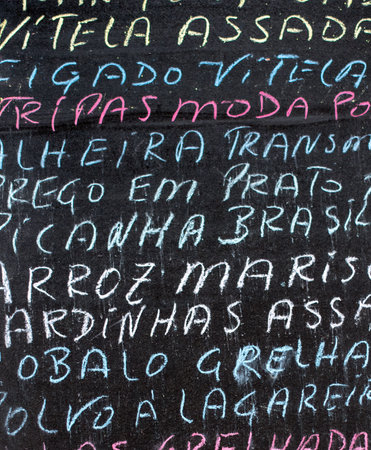 VITELA ASSADA
FIGADO VITELA
TRIPAS MODA PO
ALHEIRA TRANSM
PREGO EM PRATO
PICANHA BRASIL
ARROZ MARISC
SARDINHAS ASSA
ROBALO GRELHA
POLVO À LAGAREIR
LAS GRELHADA